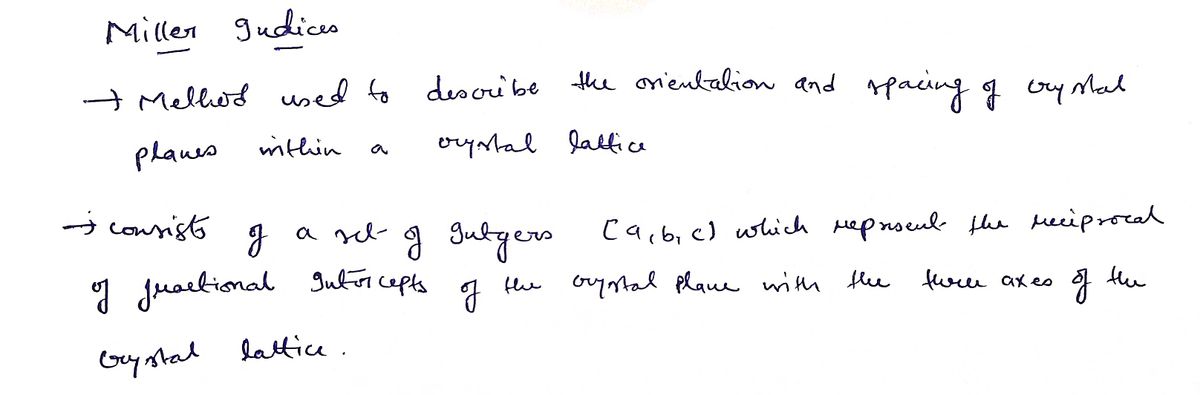 Miller Indices
→ Method used to describe the orientation and spacing of crystal
planes within a crystal lattice
→ consists of a set of Integers [a, b, c] which represent the reciprocal
of fractional Intercepts of the crystal plane with the three axes of the
crystal lattice.